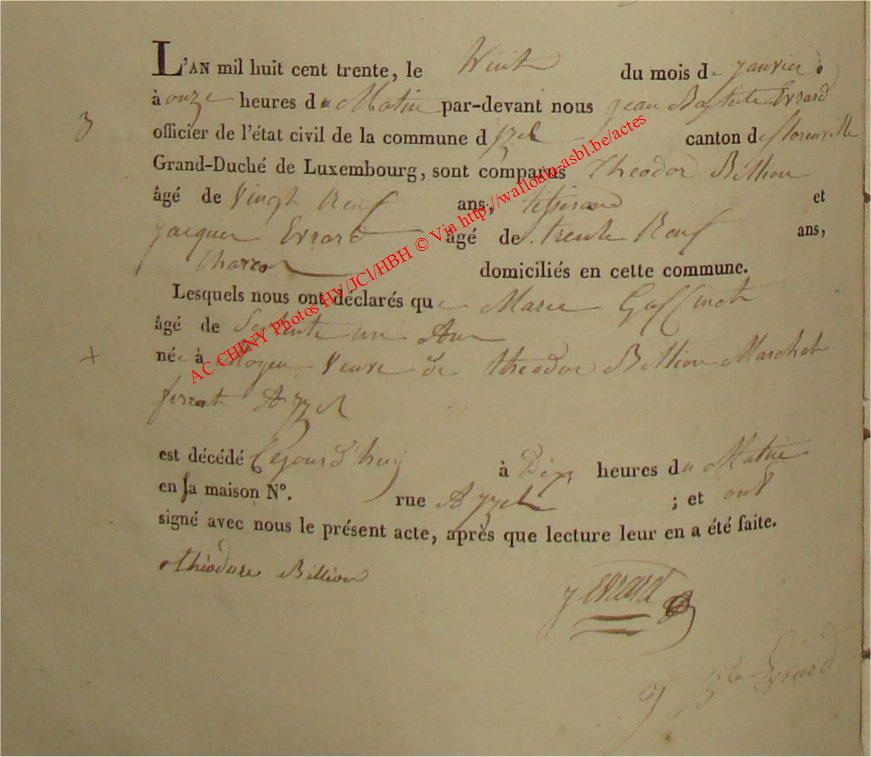 L'AN mil huit cent trente, le Vint du mois de janvier
à onze heures du Matin par-devant nous jean Baptiste Evrard
3
officier de l'état civil de la commune d izel canton de florenville
Grand-Duché de Luxembourg, sont comparus theodor Billion
âgé de Vingt Neuf ans, tisserand et
jacques Evrard âgé de trente Neuf ans,
charron domiciliés en cette commune.
Lesquels nous ont déclarés que Marie Goffinet
âgé de Septente un Ans
+ née à Moyen veuve de theodor Billion Marchal
ferrant A izel
est décédé Cejourd'huy à Dix heures du Matin
en sa maison N°. rue A izel ; et ont
signé avec nous le présent acte, après que lecture leur en a été faite.
théodore Billion
j EVRARD
j Bte Evrard
AC CHINY Photos HY/JCl/HBH © Via http://wallonia-asbl.be/actes